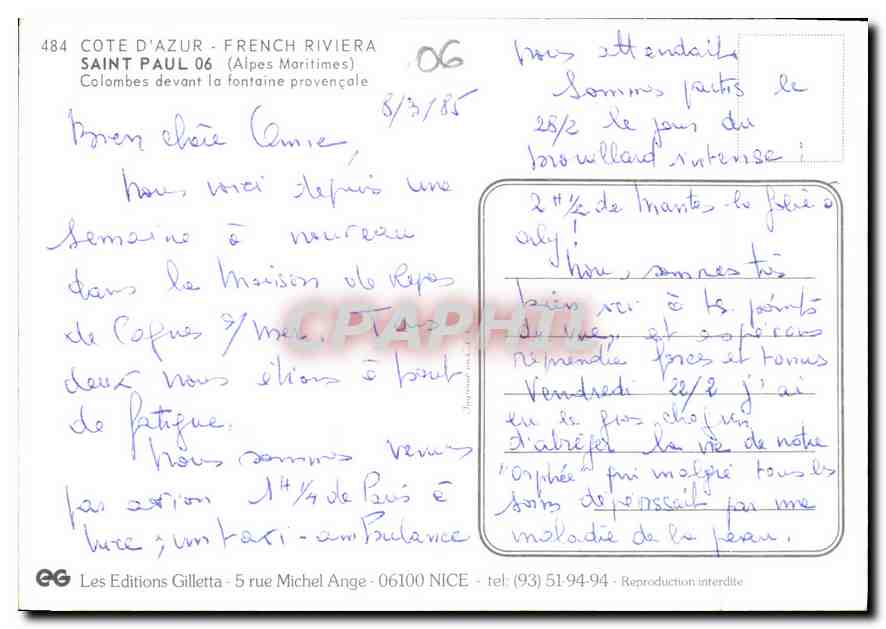 484 COTE D'AZUR - FRENCH RIVIERA
SAINT PAUL 06 (Alpes Maritimes)
Colombes devant la fontaine provençale
06
8/3/85
Bien chère Amie,
Nous voici depuis une
semaine à nouveau
dans la Maison de Repos
de Cagnes s/mer. Tous
deux nous étions à bout
de fatigue.
Nous sommes venus
par avion 1H 1/4 de Paris à
Nice ; un taxi-ambulance
nous attendait.
Sommes partis le
28/2 le jour du
brouillard intense !
2H 1/2 de Mantes la Jolie à
Orly !
Nous sommes très
bien ici à ts. points
de vue, et espérons
reprendre forces et tonus
Vendredi 22/2 j'ai
eu le gros chagrin
d'abréger la vie de notre
"Orphée" qui malgré tous les
soins dépérissait par une
maladie de la peau.
CPAPHIL
EG Les Editions Gilletta - 5 rue Michel Ange - 06100 NICE - tel: (93) 51-94-94 - Reproduction interdite